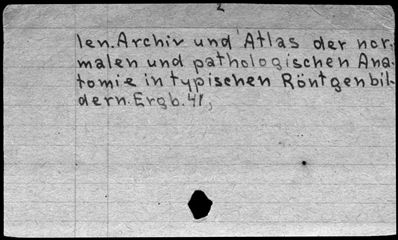 2
len. Archiv und Atlas der nor-
malen und pathologischen Ana-
tomie in typischen Röntgenbil-
dern. Ergb. 41,